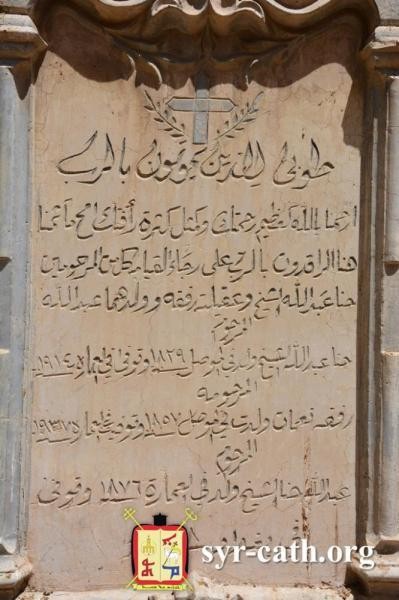 طوبى للذين يموتون بالرب
ارحمنا يا الله كعظيم رحمتك وكمثل كثرة رأفتك امح مآثمنا
هنا الراقدون بالرب على رجاء القيامة كل من المرحومين
حنا عبد الله الشيخ وعقيلته رفقه وولدهما عبد الله
المرحوم
حنا عبد الله الشيخ ولد في الموصل ١٨٢٩ وتوفي في العمارة ١٩١٤
المرحومه
رفقه نعمان ولدت في الموصل ١٨٥٧ وتوفيت في العمارة
المرحوم
عبد الله حنا الشيخ ولد في العمارة ١٨٧٦ وتوفي
syr-cath.org